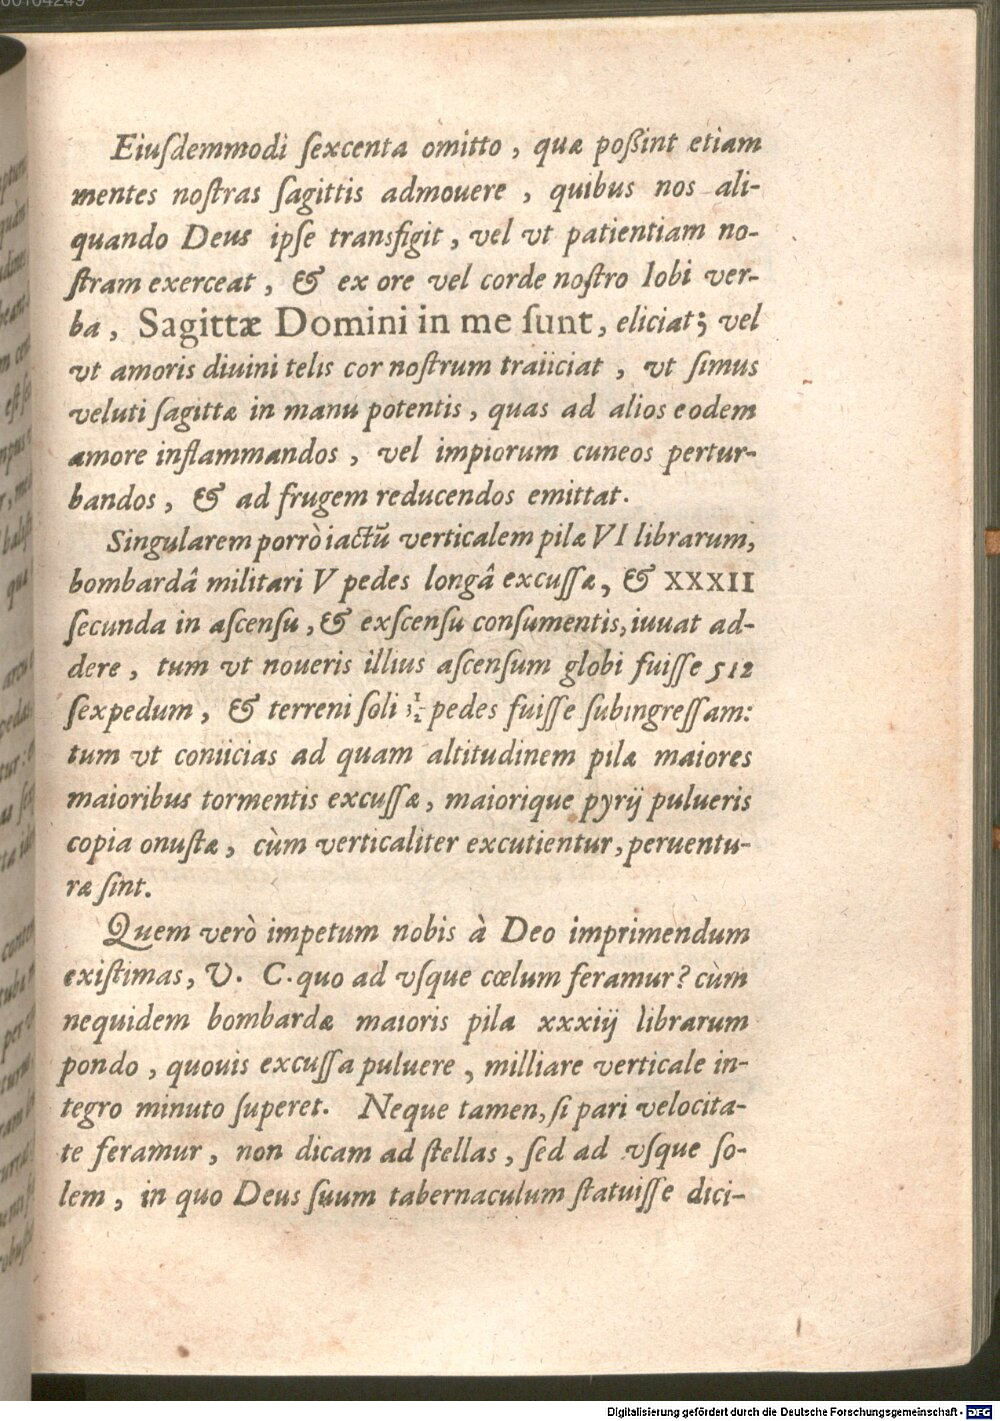 00104249
Eiuſdemmodi ſexcenta omitto, quæ poßint etiam
mentes noſtras ſagittis admouere, quibus nos ali-
quando Deus ipſe transfigit, vel vt patientiam no-
ſtram exerceat, & ex ore vel corde noſtro Iobi ver-
ba, Sagittæ Domini in me ſunt, eliciat; vel
vt amoris diuini telis cor noſtrum traiiciat, vt ſimus
veluti ſagittæ in manu potentis, quas ad alios eodem
amore inflammandos, vel impiorum cuneos pertur-
bandos, & ad frugem reducendos emittat.
Singularem porrò iactũ verticalem pilæ VI librarum,
bombardâ militari V pedes longâ excuſſæ, & XXXII
ſecunda in aſcenſu, & exſcenſu conſumentis, iuuat ad-
dere, tum vt noueris illius aſcenſum globi fuiſſe 512
ſexpedum, & terreni ſoli 3 1/2 pedes fuiſſe ſubingreſſam:
tum vt coniicias ad quam altitudinem pilæ maiores
maioribus tormentis excuſſæ, maiorique pyrij pulueris
copia onuſtæ, cùm verticaliter excutientur, peruentu-
ræ ſint.
Quem verò impetum nobis à Deo imprimendum
exiſtimas, V. C. quo ad vſque cœlum feramur? cùm
nequidem bombardæ maioris pila xxxiij librarum
pondo, quouis excuſſa puluere, milliare verticale in-
tegro minuto ſuperet. Neque tamen, ſi pari velocita-
te feramur, non dicam ad ſtellas, ſed ad vſque ſo-
lem, in quo Deus ſuum tabernaculum ſtatuiſſe dici-
Digitalisierung gefördert durch die Deutsche Forschungsgemeinschaft - DFG